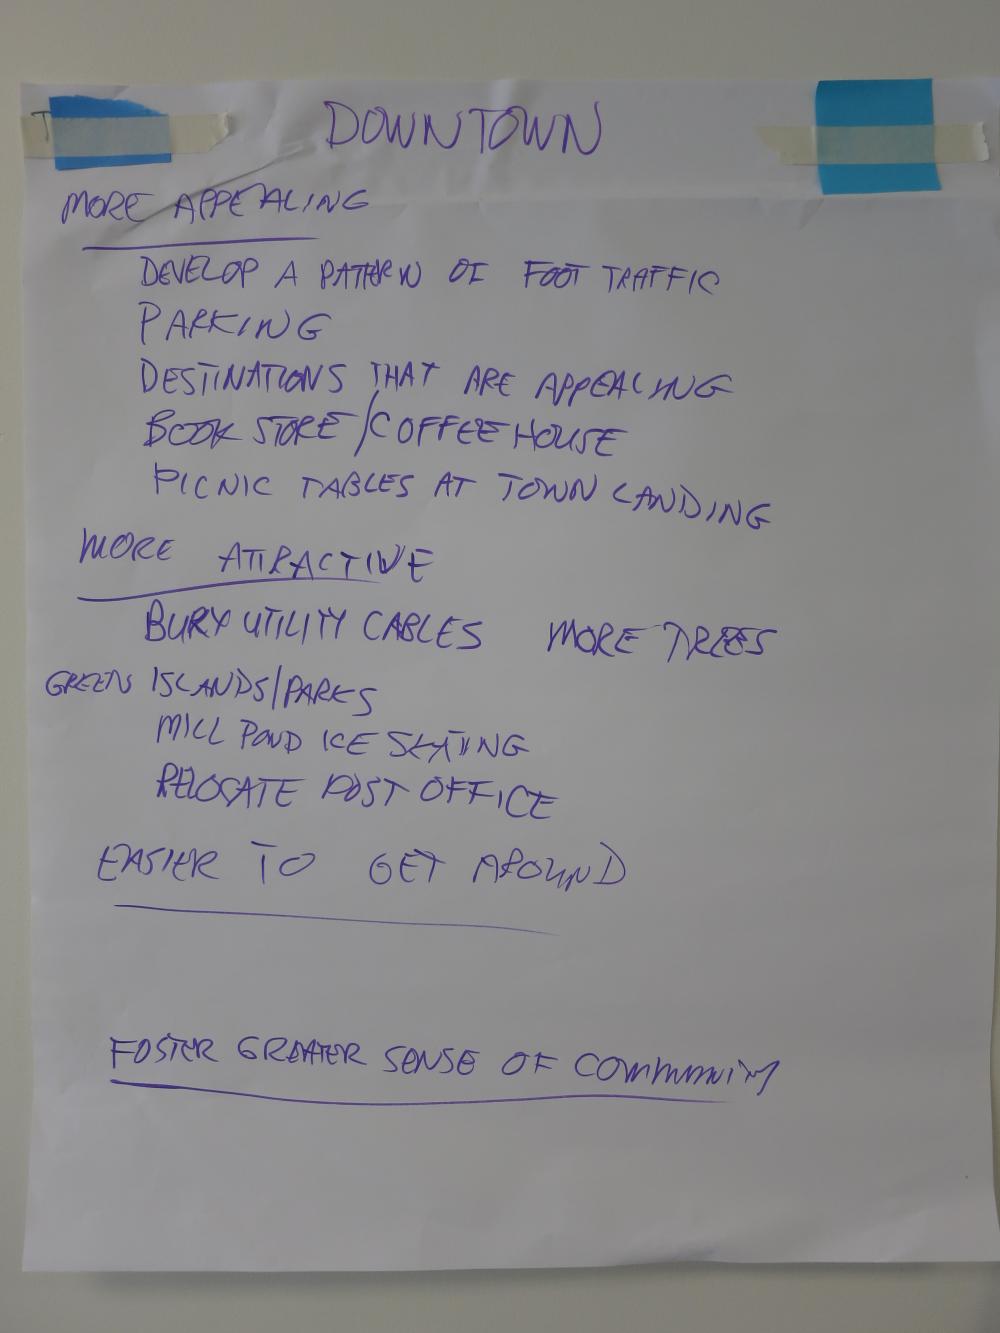 DOWNTOWN
MORE APPEALING
DEVELOP A PATTERN OF FOOT TRAFFIC
PARKING
DESTINATIONS THAT ARE APPEALING
BOOK STORE/COFFEE HOUSE
PICNIC TABLES AT TOWN LANDING
MORE ATTRACTIVE
BURY UTILITY CABLES MORE TREES
GREEN ISLANDS/PARKS
MILL POND ICE SKATING
RELOCATE POST OFFICE
EASIER TO GET AROUND
FOSTER GREATER SENSE OF COMMUNITY